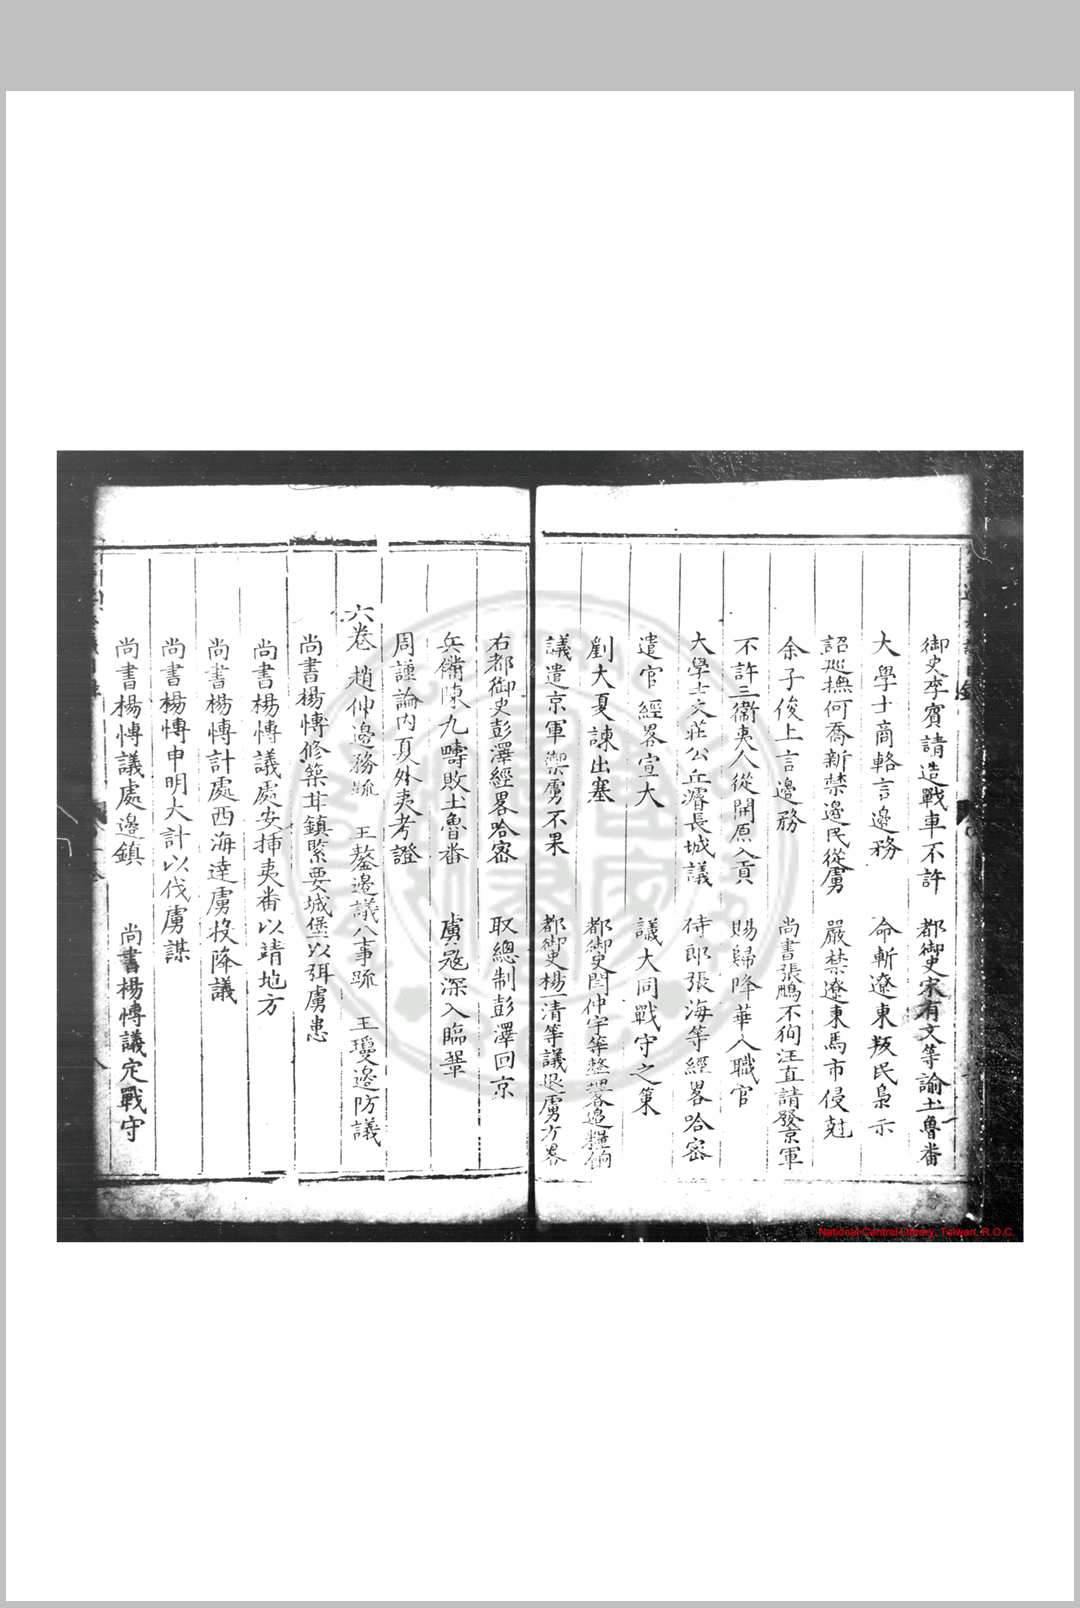 御史李賓請造戰車不許 都御史宋有文等諭土魯番
大學士商輅言邊務 命斬遼東叛民梟示
詔廵撫何喬新禁邊民從虜 嚴禁遼東馬市侵尅
余子俊上言邊務 尚書張鵬不徇汪直請發京軍
不許三衞夷人從開原入貢 賜歸降華人職官
大學士文莊公丘濬長城議 侍郎張海等經畧哈密
遣官經畧宣大 議大同戰守之策
劉大夏諫出塞 都御史閆仲宇等整理各邊糧餉
議遣京軍禦虜不果 都御史楊一清等議退虜方畧
右都御史彭澤經畧哈密 取總制彭澤回京
兵備陳九疇敗土魯番 虜宼深入臨鞏
周謹論内夏外夷考證
六卷 趙伸邊務疏 王鏊邊議八事疏 王瓊邊防議
尚書楊愽修築甘鎮緊要城堡以弭虜患
尚書楊愽議處安揷夷番以靖地方
尚書楊愽計處西海達虜投降議
尚書楊愽申明大計以伐虜謀
尚書楊愽議處邊鎮 尚書楊愽議定戰守
National Central Library, Taiwan, R.O.C.